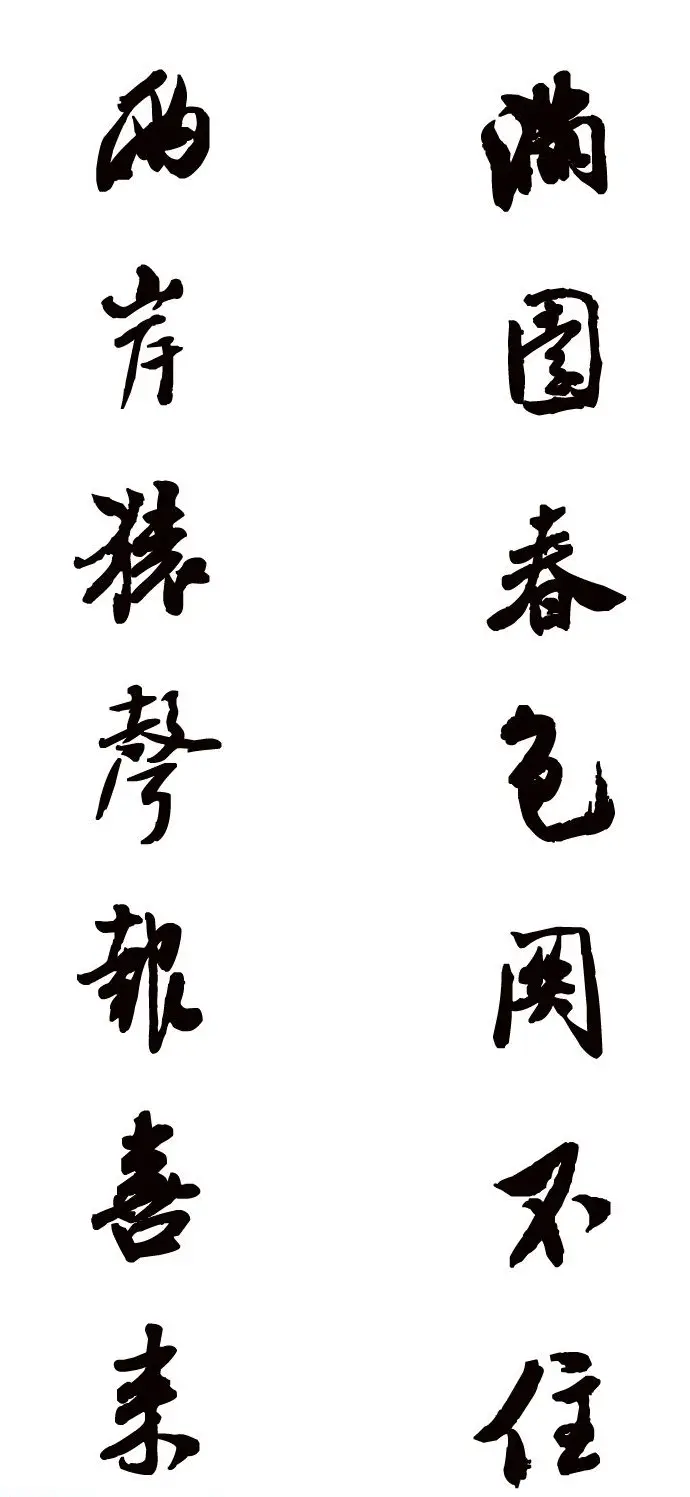 滿園春色関不住
兩岸猿聲報喜来